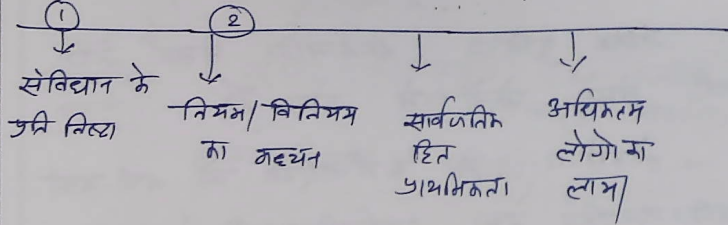 1 2
संविधान के
प्रति निष्ठा
नियम/विनियम
का मध्यन
सार्वजनिक
हित
प्राथमिकता
अधिकतम
लोगो का
लाभ/